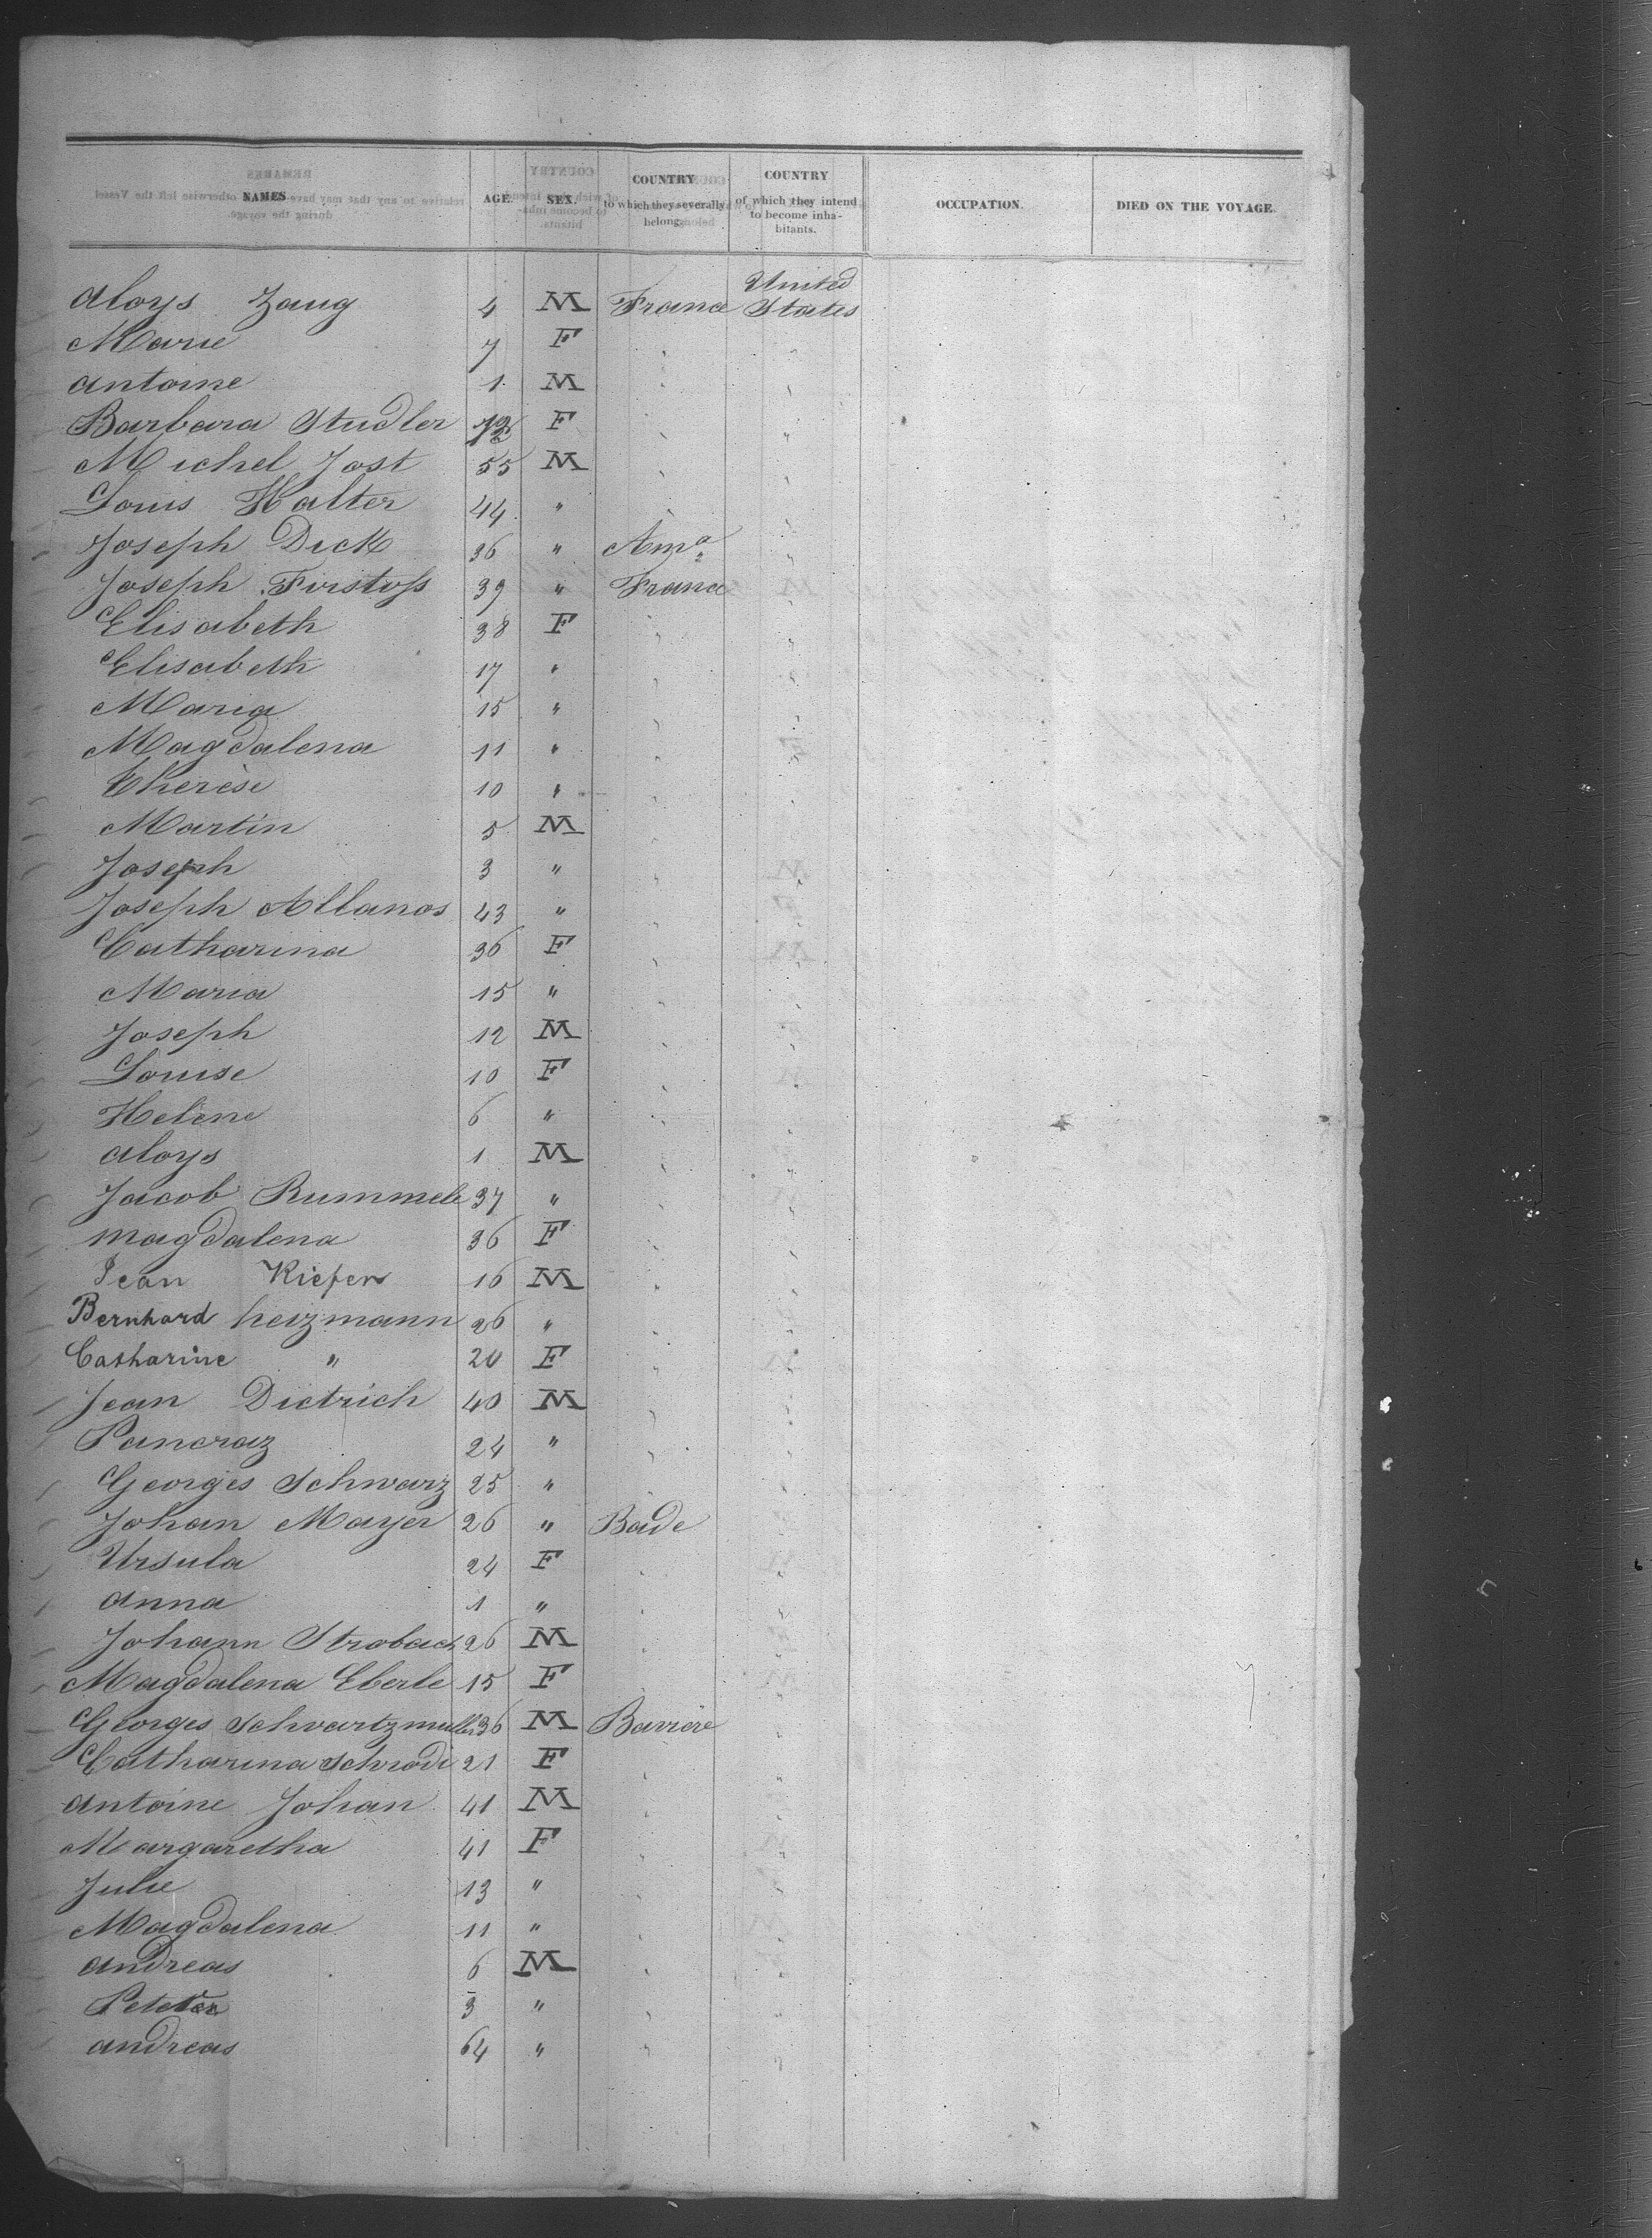 NAMES AGE. SEX. COUNTRY to which they severally belong. COUNTRY of which they intend to become inhabitants. OCCUPATION. DIED ON THE VOYAGE.
Aloys Zaug 4 M France United States
Marie 7 F " "
Antoine 1 M " "
Barbara Studler F " "
Michel Jost 55 M " "
Louis Halter 44 " " "
Joseph Dick 36 " Ama "
Joseph Firstoss 39 " France "
Elisabeth 38 F " "
Elisabeth 17 " " "
Maria 15 " " "
Magdalena 11 " " "
Therèse 10 " " "
Martin 5 M " "
Joseph 3 " " "
Joseph Allanos 43 " " "
Catharina 36 F " "
Maria 15 " " "
Joseph 12 M " "
Louise 10 F " "
Helene 6 " " "
Aloys 1 M " "
Jacob Rummele 37 " " "
Magdalena 36 F " "
Jean Kiefer 16 M " "
Bernhard heizmann 26 " " "
Catharine " 20 F " "
Jean Dietrich 40 M " "
Pancraz 24 " " "
Georges Schwarz 25 " " "
Johan Mayer 26 " Bade "
Ursula 24 F " "
Anna 1 " " "
Johann Strobach 26 M " "
Magdalena Eberle 15 F " "
Georges Schwartzmuller 36 M Bavière "
Catharina Schrodi 21 F " "
Antoine Johan 41 M " "
Margaretha 41 F " "
Julie 13 " " "
Magdalena 11 " " "
Andreas 6 M " "
Peter 3 " " "
Andreas 64 " " "